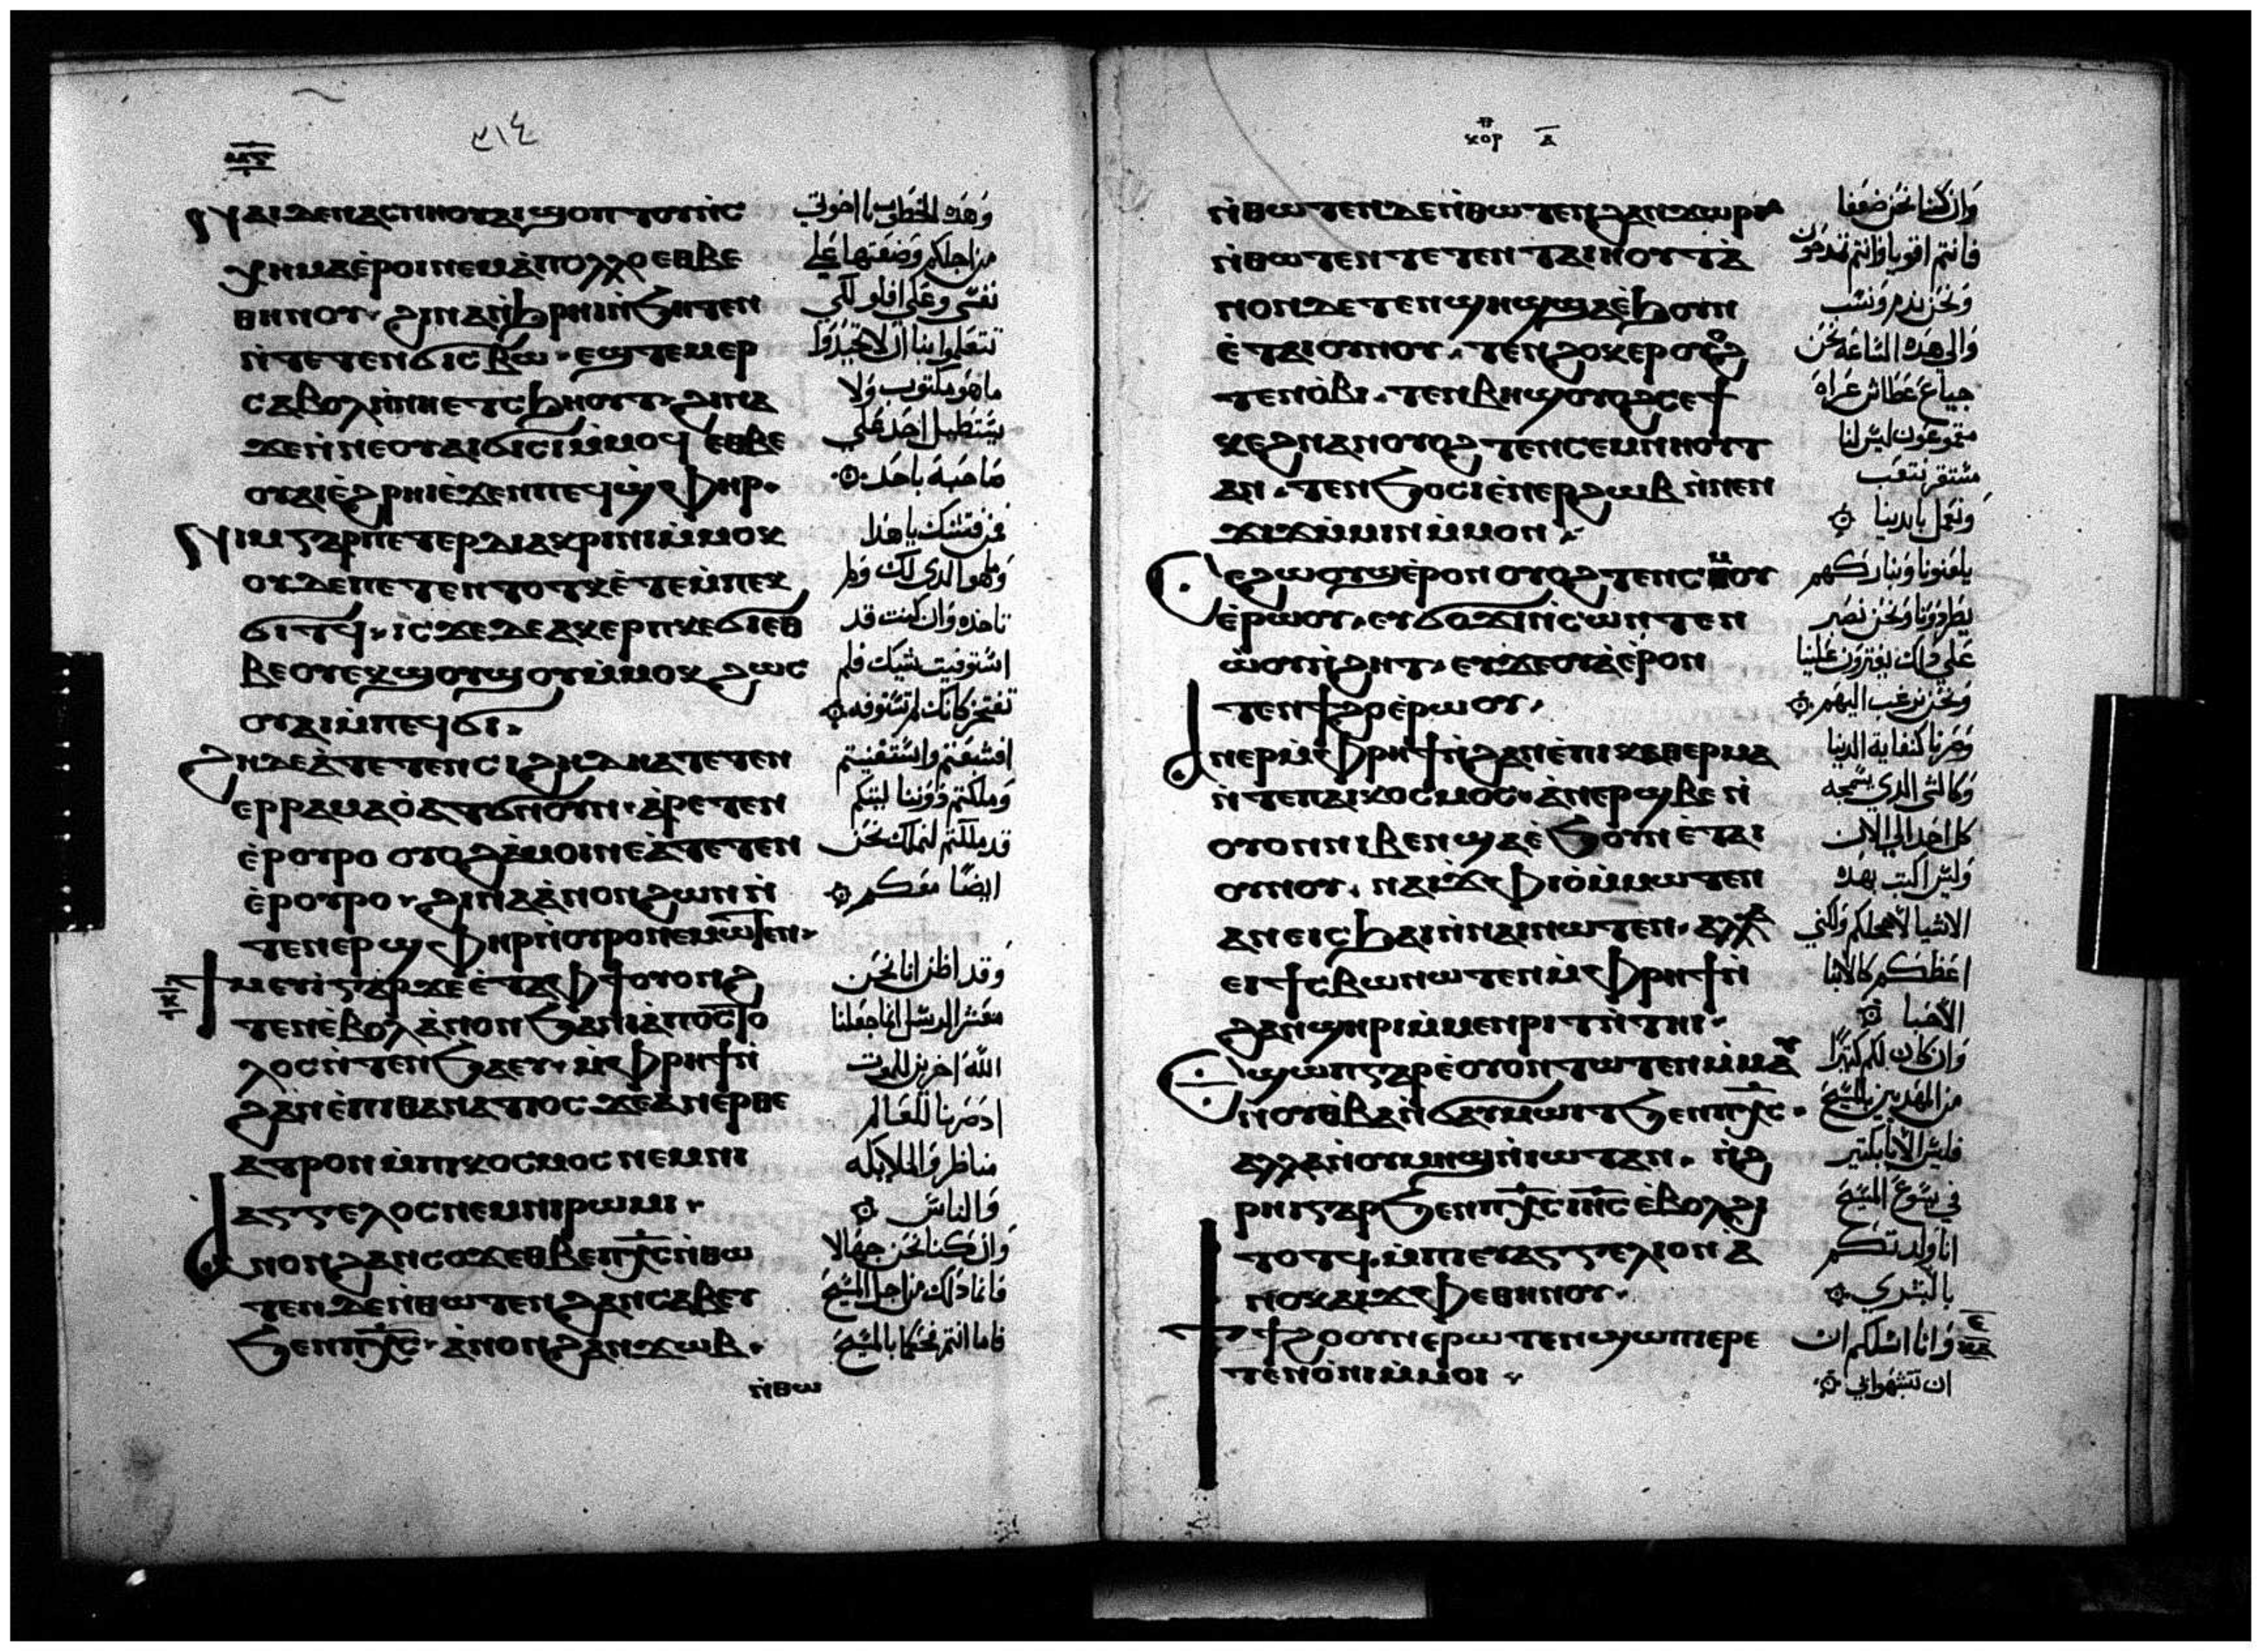 ⲙ̅ⲋ̅
٣١٤
ⲛⲁⲓ ⲇⲉ ⲛⲁⲥⲛⲏⲟⲩ ⲁⲓϣⲟⲡ ⲧⲟⲩ ⲛ̀ⲥ
ⲭⲏⲙⲁ ⲉ̀ⲣⲟⲓ ⲛⲉⲙ ⲁ̀ⲡⲟⲗⲗⲟ ⲉⲑⲃⲉ
ⲑⲏⲛⲟⲩ ϩⲓⲛⲁ ⲛ̀ϧⲣⲏⲓ ⲛ̀ϧⲏⲧⲉⲛ
ⲛ̀ⲧⲉⲧⲉⲛϭⲓⲥⲃⲱ ⲉϣⲧⲉⲙⲉⲣ
ⲥⲁⲃⲟⲗ ⲛ̀ⲛⲏ ⲉⲧⲥϧⲏⲟⲩⲧ ϩⲓⲛⲁ
ϫⲉ ⲛ̀ⲛⲉ ⲟⲩⲁⲓ ϭⲓⲥⲓ ⲙ̀ⲙⲟϥ ⲉⲑⲃⲉ
ⲟⲩⲁⲓ ⲉ̀ϩⲣⲏⲓ ⲉ̀ϫⲉⲛ ⲡⲉϥϣ̀ⲫⲏⲣ
ⲛⲓⲙ ⲅⲁⲣ ⲡⲉⲧⲉⲣⲇⲓⲁⲕⲣⲓⲛⲓⲙ̀ⲙⲟⲕ
ⲟⲩ ⲇⲉ ⲡⲉⲧⲉⲛⲧⲟⲧⲕ ⲉ̀ⲧⲉⲙ̀ⲡⲉⲕ
ϭⲓⲧϥ ⲓⲥϫⲉ ⲇⲉ ⲁⲕⲉⲣⲡⲕⲉϭⲓ ⲉⲑ
ⲃⲉ ⲟⲩ ⲉⲕϣⲟⲩϣⲟⲩ ⲙ̀ⲙⲟⲕ ϩⲱⲥ
ⲟⲩⲁⲓ ⲙ̀ⲡⲉϥϭⲓ
ϩⲏⲇⲉ ⲁ̀ⲧⲉⲧⲉⲛⲥⲓ ϩⲏⲇⲏ ⲁⲧⲉⲧⲉⲛ
ⲉⲣⲣⲁⲙⲁⲟ̀ ⲁⲧϭⲛⲟⲩⲛ ⲁ̀ⲣⲉⲧⲉⲛ
ⲉ̀ⲣⲟⲩⲣⲟ ⲟⲩⲟϩ ⲁ̀ⲙⲟⲓ ⲛⲉ ⲁ̀ⲧⲉⲧⲉⲛ
ⲉ̀ⲣⲟⲩⲣⲟ ϩⲓⲛⲁ ⲁ̀ⲛⲟⲛ ϩⲱⲛ ⲛ̀
ⲧⲉⲛⲉⲣϣ̀ⲫⲏⲣ ⲛ̀ⲟⲩⲣⲟ ⲛⲉⲙⲱⲧⲉⲛ
ϯⲙⲉⲩⲓ ⲅⲁⲣ ϫⲉ ⲉ̀ⲧⲁ ⲫϯ ⲟⲩⲟⲛϩ
ⲧⲉⲛ ⲉ̀ⲃⲟⲗ ⲁ̀ⲛⲟⲛ ϧⲁ ⲛⲓⲁ̀ⲡⲟⲥⲧⲟ
ⲗⲟⲥ ⲛ̀ⲧⲉⲛϧⲁⲉⲩ ⲙ̀ⲫⲣⲏϯ ⲛ̀
ϩⲁⲛⲉ̀ⲡⲓⲑⲁⲛⲁⲧⲓⲟⲥ ϫⲉ ⲁⲛⲉⲣⲑⲉ
ⲁⲧⲣⲟⲛ ⲙ̀ⲡⲓⲕⲟⲥⲙⲟⲥ ⲛⲉⲙ ⲛⲓ
ⲁⲅⲅⲉⲗⲟⲥ ⲛⲉⲙ ⲛⲓⲣⲱⲙⲓ
ⲁⲛⲟⲛ ϩⲁⲛⲥⲟϫ ⲉⲑⲃⲉ ⲡⲭ̅ⲥ̅ ⲛ̀ⲑⲱ
ⲧⲉⲛ ⲇⲉ ⲛ̀ⲑⲱⲧⲉⲛ ϩⲁⲛⲥⲁⲃⲉⲩ
ϧⲉⲛ ⲡⲭ̅ⲥ̅ ⲁ̀ⲛⲟⲛ ϩⲁⲛϫⲱⲃ
ⲛ̀ⲑⲱ
وهذه الخطوب يا اخوتي
من اجلكم وضعتها على
نفسي وعلى افلو لكي
تتعلموا بنا ان لا تحيدوا
ما هو مكتوب ولا
يستطيل احد على
صاحبه باحد
من فتشك يا هذا
وما هو الذي لك ولم
تاخذه وان كنت قد
استوفيت شيك فلم
تفتخر كانك لم تستوفه
افشبعتم واستغنيتم
وملكتم دوننا ليتكم
قد ملكتم لنملك نحن
ايضا معكم
وقد اظن انا نحن
معشر الرسل انما جعلنا
الله اخرين للموت
اذ صرنا للعالم
مناظر والملايكه
والناس
وان كنا نحن جهالا
فانما ذلك من اجل المسيح
فاما انتم فحكما بالمسيح
ⲕⲟⲣ ⲁ̅
ⲛ̀ⲑⲱⲧⲉⲛ ⲇⲉ ⲛ̀ⲑⲱⲧⲉⲛ ϩⲁⲛϫⲱⲣⲓ
ⲛ̀ⲑⲱⲧⲉⲛ ⲧⲉⲧⲉⲛⲧⲁⲓⲏⲟⲩⲧ ⲁ̀
ⲛⲟⲛ ⲇⲉ ⲧⲉⲛϣⲏϣ ϣⲁ ⲉ̀ϧⲟⲩⲛ
ⲉ̀ⲧⲁⲓⲟⲩⲛⲟⲩ ⲧⲉⲛϩⲟⲕⲉⲣ ⲟⲩⲟϩ
ⲧⲉⲛⲟ̀ⲃⲓ ⲧⲉⲛⲃⲏϣ ⲟⲩⲟϩ ⲥⲉϯ
ⲕⲉϩ ⲛⲁⲛ ⲟⲩⲟϩ ⲧⲉⲛⲥⲉⲙⲛⲏⲟⲩⲧ
ⲁⲛ ⲧⲉⲛϧⲟⲥⲓ ⲉ̀ⲛⲉⲣϩⲱⲃ ⲛ̀ⲛⲉⲛ
ϫⲓϫ ⲙ̀ⲙⲓⲛ ⲙ̀ⲙⲟⲛ
ⲥⲉϩⲱⲟⲩϣ ⲉ̀ⲣⲟⲛ ⲟⲩⲟϩ ⲧⲉⲛⲥⲙⲟⲩ
ⲉ̀ⲣⲱⲟⲩ ⲉⲩϭⲟϫⲓ ⲛ̀ⲥⲱⲛ ⲧⲉⲛ
ⲱ̀ⲟⲩⲛ̀ϩⲏⲧ ⲉⲩϫⲉⲟⲩⲁ̀ ⲉ̀ⲣⲟⲛ
ⲧⲉⲛϯϩⲟ ⲉ̀ⲣⲱⲟⲩ
ⲁⲛⲉⲣ ⲙ̀ⲫⲣⲏϯ ⲛ̀ϩⲁⲛⲉ̀ⲡⲓⲕⲁⲑⲉⲣⲙⲁ
ⲛ̀ⲧⲉ ⲡⲁⲓⲕⲟⲥⲙⲟⲥ ⲁ̀ⲛⲉⲣϣⲃⲉ ⲛ̀
ⲟⲩⲟⲛ ⲛⲓⲃⲉⲛ ϣⲁ ⲉ̀ϧⲟⲩⲛ ⲉ̀ⲧⲁⲓ
ⲟⲩⲛⲟⲩ ⲛⲁⲓϫ̀ⲫⲓⲟ̀ ⲙ̀ⲙⲱⲧⲉⲛ
ⲁⲛ ⲉⲓⲥϧⲁⲓ ⲛ̀ⲛⲁⲓ ⲛⲱⲧⲉⲛ ⲁⲗⲗⲁ
ⲉⲓϯⲥⲃⲱ ⲛⲱⲧⲉⲛ ⲙ̀ⲫⲣⲏϯ ⲛ̀
ϩⲁⲛϣⲏⲣⲓ ⲙ̀ⲙⲉⲛⲣⲓⲧ ⲛ̀ⲧⲏⲓ
ⲉϣⲱⲡ ⲅⲁⲣ ⲉ̀ⲟⲩⲟⲛⲧⲱⲧⲉⲛ ⲙ̀ⲙⲁⲩ
ⲛⲟⲩⲑⲃⲁ ⲛ̀ϭⲁⲩⲙⲱⲓⲧ ϧⲉⲛ ⲡⲭ̅ⲥ̅
ⲁⲗⲗⲁ ⲛ̀ⲟⲩⲙⲏϣ ⲛ̀ⲓⲱⲧ ⲁⲛ ⲛ̀ϩ
ⲣⲏⲓ ⲅⲁⲣ ϧⲉⲛ ⲡⲭ̅ⲥ̅ ⲓⲏ̅ⲥ̅ ⲉ̀ⲃⲟⲗ ϩⲓ
ⲧⲟⲧϥ ⲙ̀ⲡⲓⲉⲩⲁⲅⲅⲉⲗⲓⲟⲛ ⲁ̀
ⲛⲟⲕ ⲁⲓϫ̀ⲫⲉ ⲑⲏⲛⲟⲩ
ϯϯϩⲟ ⲟⲩⲛ ⲉⲣⲱⲧⲉⲛ ϣⲱⲡⲓ ⲉⲣⲉ
ⲧⲉⲛⲟ̀ⲛⲓ ⲙ̀ⲙⲟⲓ
وان كنا نحن ضعفا
فانتم اقويا وانتم تمدحون
ونحن نذم ونسب
والى هذه الساعه نحن
جياع عطاش عراه
مقموعون ليس لنا
مستقر نتعب
ونعمل بايدينا
يلعنونا ونباركهم
يطردونا ونحن نصبر
على ذلك يفترون علينا
ونحن نرغب اليهم
وصرنا كنفاية الدنيا
وكالشي الذي يسمجه
كل احد الى الان
وليس اكتب بهذه
الاشيا لاخجلكم ولكني
اعظكم كالابنا
الاحبا
وان كان لكم كثيرا
من المهذبين بالمسيح
فليس الابا بكثير
في يسوع المسيح
انا ولدتكم
بالبشرى
وانا اسلكم ان
ان تتشبهوا بي